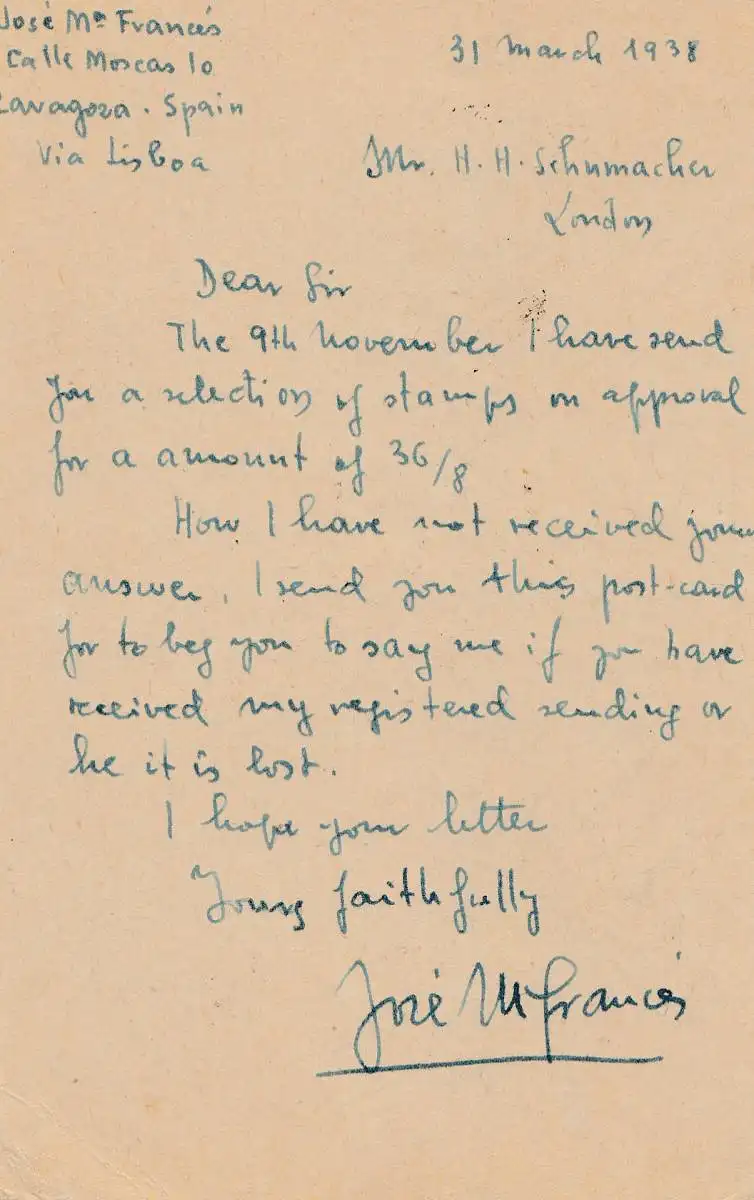 José Mª Francés
Calle Moscas 10
Zaragoza. Spain
Via Lisboa
31 march 1938
Mr. H. H. Schumacher
London
Dear Sir
The 9th November I have send
you a selection of stamps on approval
for a amount of 36/8
How I have not received your
answer, I send you this post-card
for to beg you to say me if you have
received my registered sending or
he it is lost.
I hope your letter
Yours faithfully
José Mª Francés